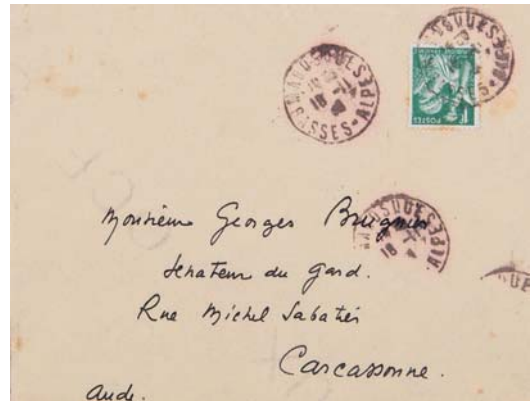 MANOSQUES
BASSES-ALPES
POSTES
Monsieur Georges Bruguier
Sénateur du Gard.
Rue Michel Sabatier
Carcassonne.
Aude.